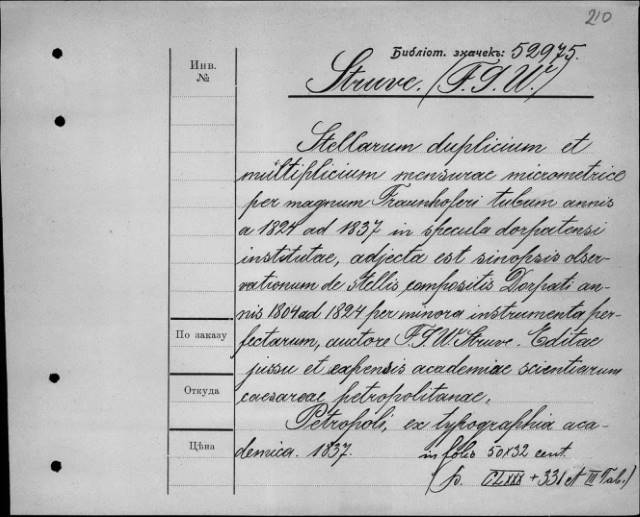 210
Библіот. значекъ: 52975.
Инв.
№
Struve. (F. G. W.)
Stellarum duplicium et
multiplicium mensurae micrometrice
per magnum Fraunhoferi tubum annis
a 1824 ad 1837 in specula dorpatensi
institutae, adjecta est sinopsis obser-
vationum de stellis compositis Dorpati an-
nis 1804 ad 1824 per minora instrumenta per-
fectarum, auctore F. G. W. Struve. Editae
jussu et expensis academiae scientiarum
caesareae petropolitanae.
Petropoli, ex typographia aca-
demica. 1837. in folio 50x32 cent.
(p. CLXXX + 331 et III Tab.)
По заказу
Откуда
Цѣна